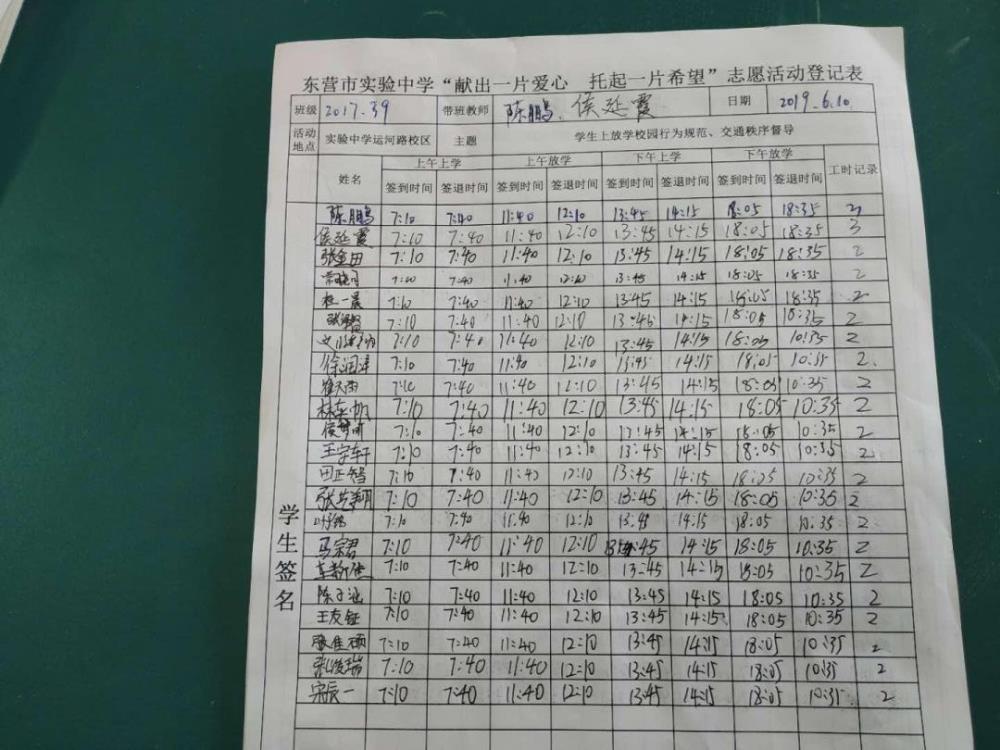 东营市实验中学“献出一片爱心 托起一片希望”志愿活动登记表
班级 2017.39 带班教师 陈鹏、侯延霞 日期 2019.6.10
活动地点 实验中学运河路校区 主题 学生上放学校园行为规范、交通秩序督导
姓名 上午上学 上午放学 下午上学 下午放学 工时记录
签到时间 签退时间 签到时间 签退时间 签到时间 签退时间 签到时间 签退时间
学生签名
陈鹏 7:10 7:40 11:40 12:10 13:45 14:15 18:05 18:35
侯延霞 7:10 7:40 11:40 12:10 13:45 14:15 18:05 18:35 3
张金田 7:10 7:40 11:40 12:10 13:45 14:15 18:05 18:35 2
7:10 7:40 11:40 12:10 13:45 14:15 18:05 18:35 2
杜一晨 7:10 7:40 11:40 12:10 13:45 14:15 18:05 18:35 2
7:10 7:40 11:40 12:10 13:45 14:15 18:05 18:35 2
7:10 7:40 11:40 12:10 13:45 14:15 18:05 10:35 2
徐润泽 7:10 7:40 11:40 12:10 13:45 14:15 18:05 10:35 2.
7:10 7:40 11:40 12:10 13:45 14:15 18:05 10:35 2
林英帆 7:10 7:40 11:40 12:10 13:45 14:15 18:05 10:35 2
侯梦可 7:10 7:40 11:40 12:10 13:45 14:15 18:05 10:35 2
王宇轩 7:10 7:40 11:40 12:10 13:45 14:15 18:05 10:35 2
田正智 7:10 7:40 11:40 12:10 13:45 14:15 18:05 10:35 2
7:10 7:40 11:40 12:10 13:45 14:15 18:05 10:35 2
7:10 7:40 11:40 12:10 13:45 14:15 18:05 10:35 2
马宗君 7:10 7:40 11:40 12:10 14:15 18:05 10:35 2
7:10 7:40 11:40 12:10 13:45 14:15 18:05 10:35 2
陈子涵 7:10 7:40 11:40 12:10 13:45 14:15 18:05 10:35 2
王友钰 7:10 7:40 11:40 12:10 13:45 14:15 18:05 10:35 2
张佳硕 7:10 7:40 11:40 12:10 13:45 14:15 18:05 10:35 2
张俊瑞 7:10 7:40 11:40 12:10 13:45 14:15 18:05 10:35 2
宋辰一 7:10 7:40 11:40 12:10 13:45 14:15 18:05 10:35 2